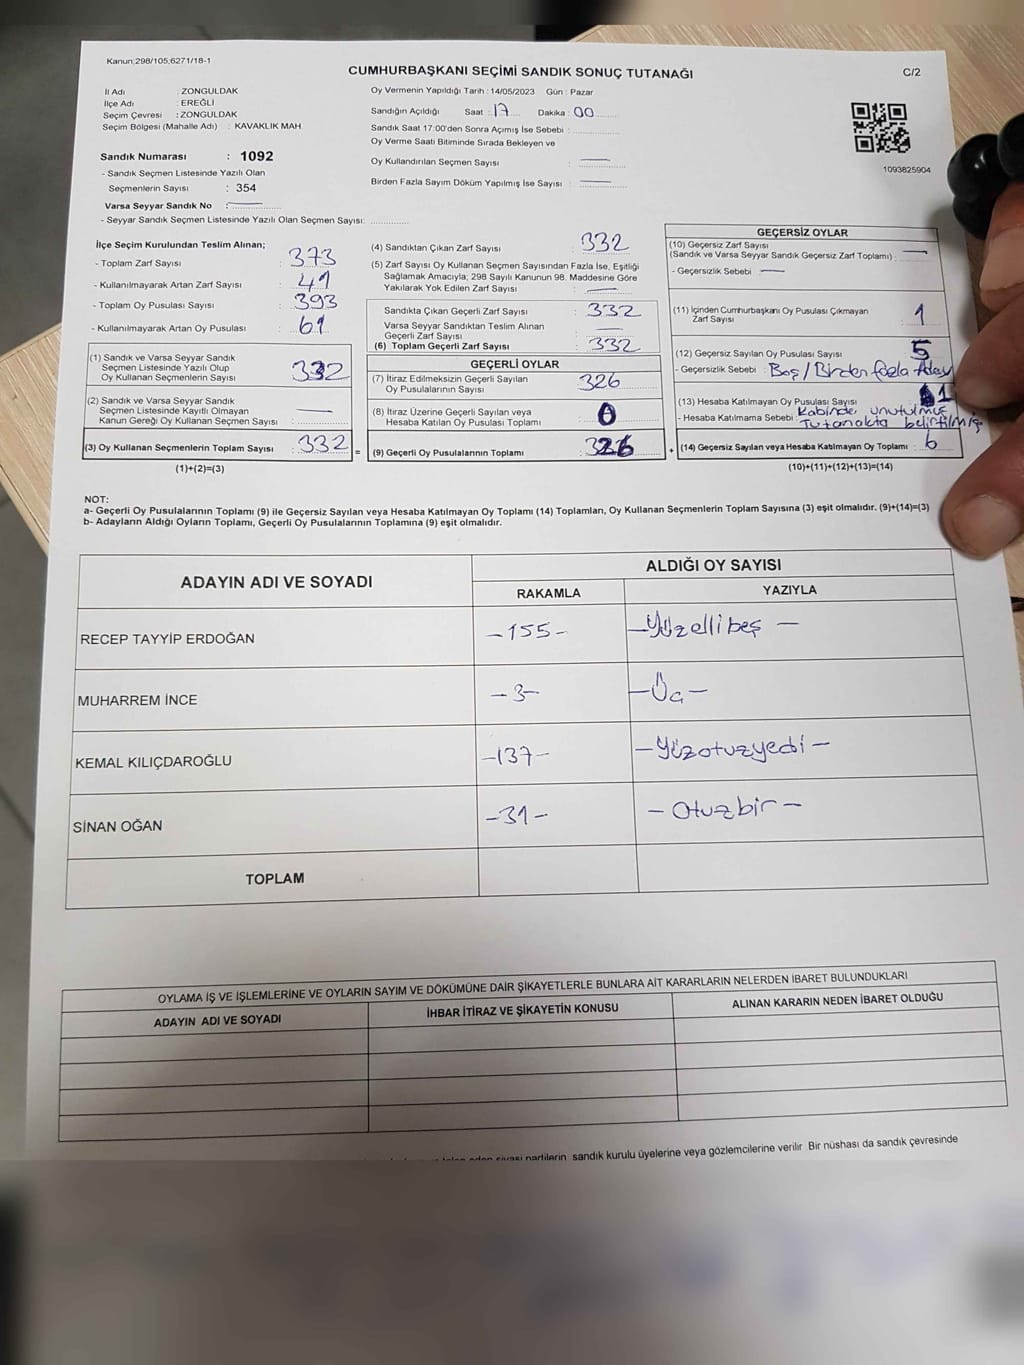 Kanun;298/105,6271/18-1
CUMHURBAŞKANI SEÇİMİ SANDIK SONUÇ TUTANAĞI
C/2
İl Adı : ZONGULDAK
İlçe Adı : EREĞLİ
Seçim Çevresi : ZONGULDAK
Seçim Bölgesi (Mahalle Adı) : KAVAKLIK MAH.
Sandık Numarası : 1092
- Sandık Seçmen Listesinde Yazılı Olan
Seçmenlerin Sayısı : 354
Varsa Seyyar Sandık No :
- Seyyar Sandık Seçmen Listesinde Yazılı Olan Seçmen Sayısı: ..............
Oy Vermenin Yapıldığı Tarih : 14/05/2023 Gün : Pazar
Sandığın Açıldığı Saat : 17 Dakika : 00
Sandık Saat 17:00'den Sonra Açımış İse Sebebi :
Oy Verme Saati Bitiminde Sırada Bekleyen ve
Oy Kullandırılan Seçmen Sayısı : —
Birden Fazla Sayım Döküm Yapılmış İse Sayısı : —
1093825904
İlçe Seçim Kurulundan Teslim Alınan;
- Toplam Zarf Sayısı : 373
- Kullanılmayarak Artan Zarf Sayısı : 41
- Toplam Oy Pusulası Sayısı : 393
- Kullanılmayarak Artan Oy Pusulası : 61
(1) Sandık ve Varsa Seyyar Sandık
Seçmen Listesinde Yazılı Olup
Oy Kullanan Seçmenlerin Sayısı : 332
(2) Sandık ve Varsa Seyyar Sandık
Seçmen Listesinde Kayıtlı Olmayan
Kanun Gereği Oy Kullanan Seçmen Sayısı : —
(3) Oy Kullanan Seçmenlerin Toplam Sayısı : 332 =
(1)+(2)=(3)
(4) Sandıktan Çıkan Zarf Sayısı : 332
(5) Zarf Sayısı Oy Kullanan Seçmen Sayısından Fazla İse, Eşitliği
Sağlamak Amacıyla; 298 Sayılı Kanunun 98. Maddesine Göre
Yakılarak Yok Edilen Zarf Sayısı : —
Sandıkta Çıkan Geçerli Zarf Sayısı : 332
Varsa Seyyar Sandıktan Teslim Alınan
Geçerli Zarf Sayısı : —
(6) Toplam Geçerli Zarf Sayısı : 332
GEÇERLİ OYLAR
(7) İtiraz Edilmeksizin Geçerli Sayılan
Oy Pusulalarının Sayısı : 326
(8) İtiraz Üzerine Geçerli Sayılan veya
Hesaba Katılan Oy Pusulası Toplamı : 0
(9) Geçerli Oy Pusulalarının Toplamı : 326 +
GEÇERSİZ OYLAR
(10) Geçersiz Zarf Sayısı
(Sandık ve Varsa Seyyar Sandık Geçersiz Zarf Toplamı) : —
- Geçersizlik Sebebi : —
(11) İçinden Cumhurbaşkanı Oy Pusulası Çıkmayan
Zarf Sayısı : 1
(12) Geçersiz Sayılan Oy Pusulası Sayısı : 5
- Geçersizlik Sebebi : Boş/Birden fazla Aday
(13) Hesaba Katılmayan Oy Pusulası Sayısı : 1
- Hesaba Katılmama Sebebi : Kabinde unutulmuş
Tutanakta belirtilmiş
(14) Geçersiz Sayılan veya Hesaba Katılmayan Oy Toplamı : 6
(10)+(11)+(12)+(13)=(14)
NOT:
a- Geçerli Oy Pusulalarının Toplamı (9) ile Geçersiz Sayılan veya Hesaba Katılmayan Oy Toplamı (14) Toplamları, Oy Kullanan Seçmenlerin Toplam Sayısına (3) eşit olmalıdır. (9)+(14)=(3)
b- Adayların Aldığı Oyların Toplamı, Geçerli Oy Pusulalarının Toplamına (9) eşit olmalıdır.
ADAYIN ADI VE SOYADI
ALDIĞI OY SAYISI
RAKAMLA YAZIYLA
RECEP TAYYİP ERDOĞAN -155- -Yüzellibeş-
MUHARREM İNCE -3- -Üç-
KEMAL KILIÇDAROĞLU -137- -Yüzotuzyedi-
SİNAN OĞAN -31- -Otuzbir-
TOPLAM
OYLAMA İŞ VE İŞLEMLERİNE VE OYLARIN SAYIM VE DÖKÜMÜNE DAİR ŞİKAYETLERLE BUNLARA AİT KARARLARIN NELERDEN İBARET BULUNDUKLARI
ADAYIN ADI VE SOYADI İHBAR İTİRAZ VE ŞİKAYETİN KONUSU ALINAN KARARIN NEDEN İBARET OLDUĞU
siyasi partilerin sandık kurulu üyelerine veya gözlemcilerine verilir Bir nüshası da sandık çevresinde